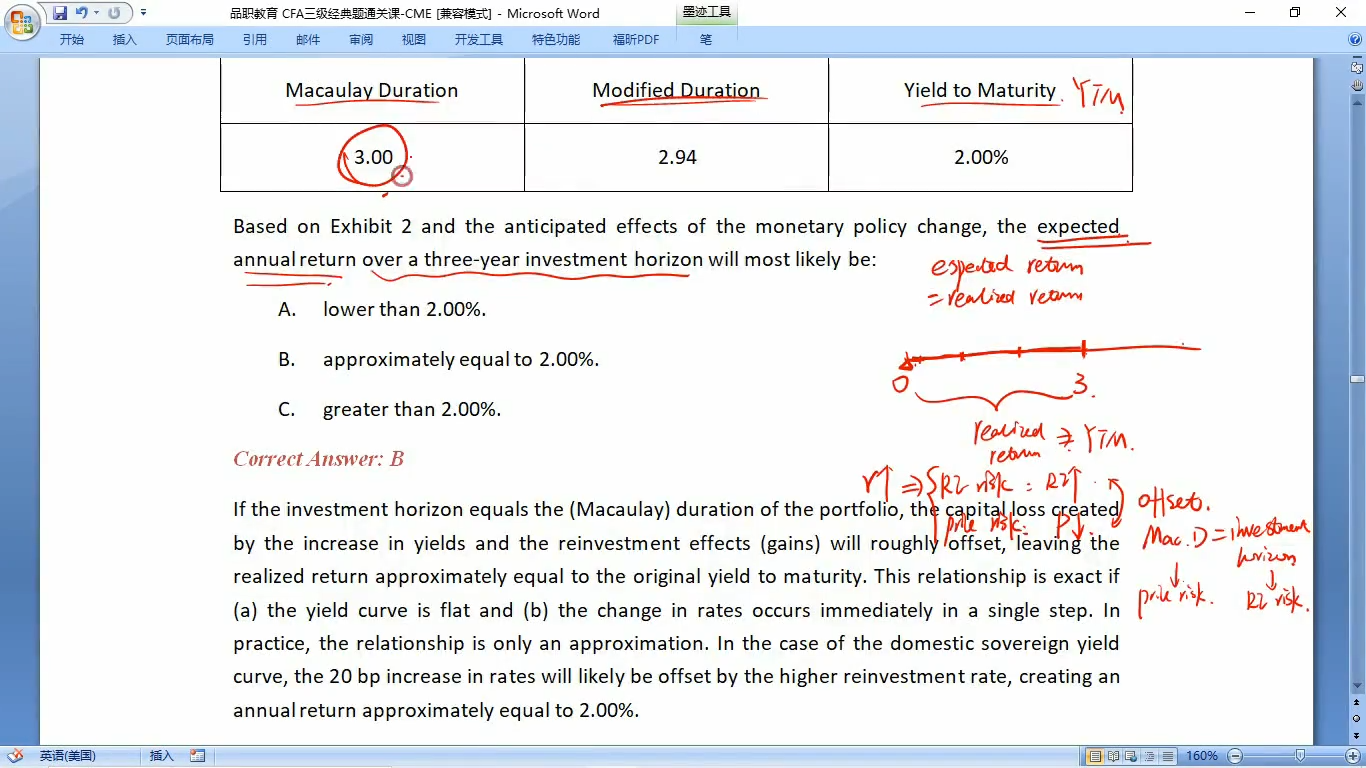 品职教育 CFA三级经典题通关课-CME [兼容模式] - Microsoft Word
墨迹工具
开始 插入 页面布局 引用 邮件 审阅 视图 开发工具 特色功能 福昕PDF 笔
Macaulay Duration Modified Duration Yield to Maturity YTM
3.00 2.94 2.00%
Based on Exhibit 2 and the anticipated effects of the monetary policy change, the expected
annual return over a three-year investment horizon will most likely be:
expected return
= realized return
A. lower than 2.00%.
B. approximately equal to 2.00%.
0 3.
C. greater than 2.00%.
realized return YTM.
Correct Answer: B
r↑ ⇒ RI risk : RI↑
price risk: P↓.
offset.
Mac. D = investment horizon
↓ ↓
price risk. RI risk.
If the investment horizon equals the (Macaulay) duration of the portfolio, the capital loss created
by the increase in yields and the reinvestment effects (gains) will roughly offset, leaving the
realized return approximately equal to the original yield to maturity. This relationship is exact if
(a) the yield curve is flat and (b) the change in rates occurs immediately in a single step. In
practice, the relationship is only an approximation. In the case of the domestic sovereign yield
curve, the 20 bp increase in rates will likely be offset by the higher reinvestment rate, creating an
annual return approximately equal to 2.00%.
英语(美国) 插入 160%